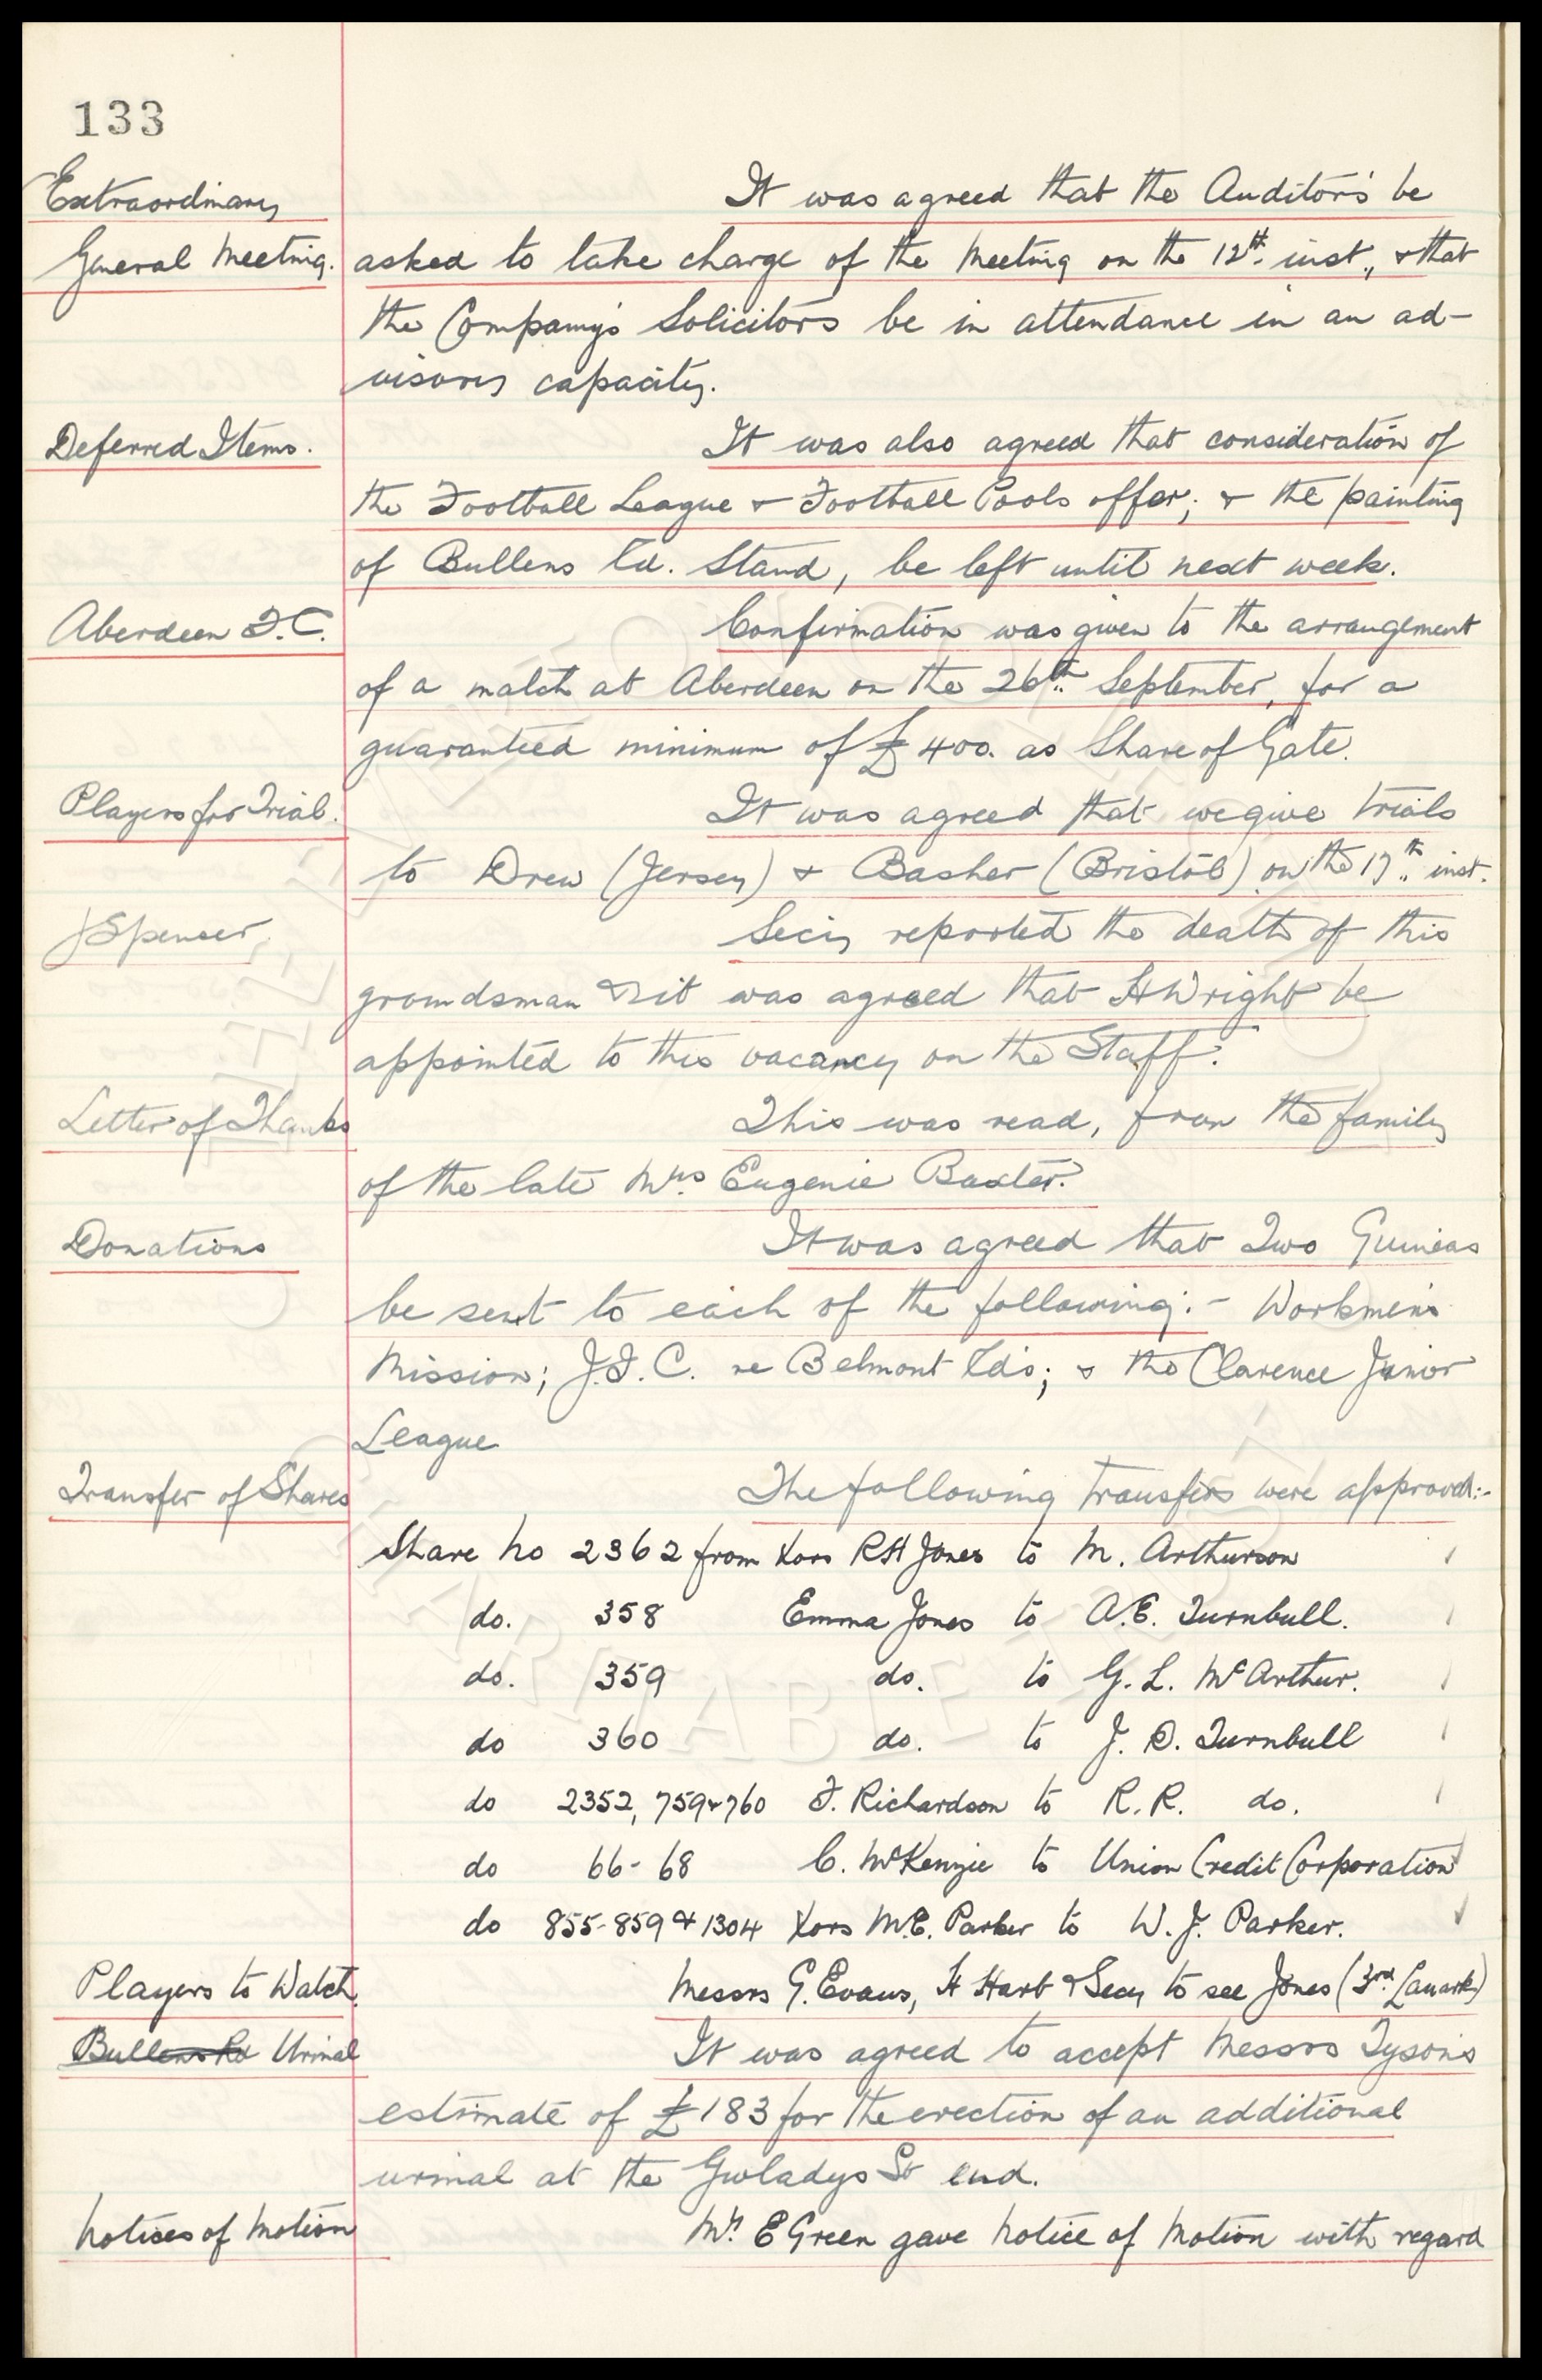 133
Extraordinary
General Meeting.
It was agreed that the Auditors be
asked to take charge of the Meeting on the 12th. inst., & that
the Company's Solicitors be in attendance in an ad-
visory capacity.
Deferred Items.
It was also agreed that consideration of
the Football League & Football Pools offer; & the painting
of Bullens Rd. Stand, be left until next week.
Aberdeen F.C.
Confirmation was given to the arrangement
of a match at Aberdeen on the 26th. September, for a
guaranteed minimum of £400. as Share of Gate.
Players for Trial.
It was agreed that we give trials
to Drew (Jersey) & Basher (Bristol) on the 17th. inst.
J Spencer.
Secy reported the death of this
groundsman & it was agreed that H Wright be
appointed to this vacancy on the Staff.
Letter of Thanks
This was read, from the family
of the late Mrs. Eugenie Baxter.
Donations
It was agreed that Two Guineas
be sent to each of the following:- Workmen's
Mission; J.F.C. re Belmont Rd's; & the Clarence Junior
League
Transfer of Shares
The following transfers were approved:-
Share No 2362 from Xors R H Jones to M. Arthurson
do. 358 Emma Jones to A.E. Turnbull.
do. 359 do. to G. L. McArthur.
do 360 do. to J. D. Turnbull
do 2352, 759 & 760 F. Richardson to R. R. do.
do 66-68 C. McKenzie to Union Credit Corporation
do 855-859 & 1304 Xors M.E. Parker to W. J. Parker.
Players to Watch.
Messrs G. Evans, H Hart & Secy to see Jones (3rd. Lanark)
Bullens Rd Urinal
It was agreed to accept Messrs Tyson's
estimate of £183 for the erection of an additional
urinal at the Gwladys St end.
Notices of Motion
Mr. E Green gave Notice of Motion with regard